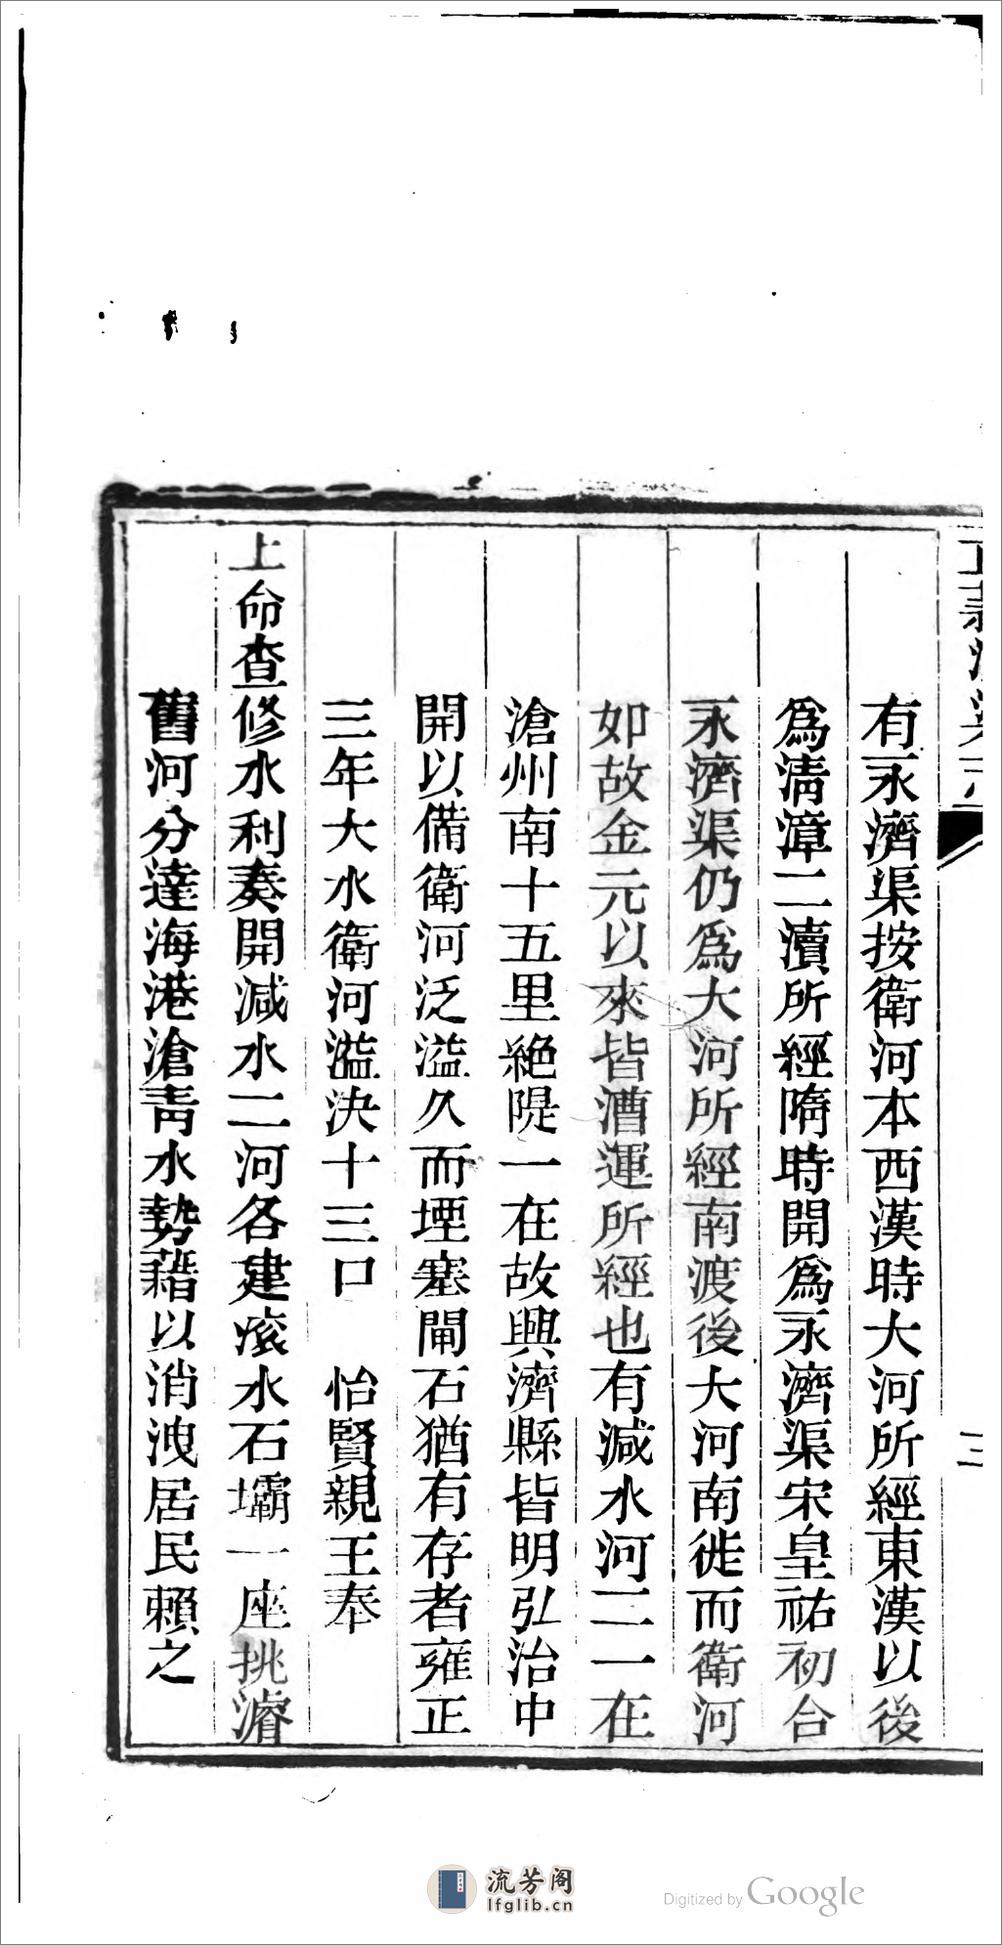 有永濟渠按衛河本西漢時大河所經東漢以後
爲清漳二瀆所經隋時開爲永濟渠宋皇祐初合
永濟渠仍爲大河所經南渡後大河南徙而衛河
如故金元以來皆漕運所經也有減水河二一在
滄州南十五里絶隄一在故興濟縣皆明弘治中
開以備衛河泛溢久而堙塞閘石猶有存者雍正
三年大水衛河溢決十三口 怡賢親王奉
上命查修水利奏開減水二河各建滾水石壩一座挑濬
舊河分達海港滄青水勢藉以消洩居民賴之
三
流芳阁
lfglib.cn
Digitized by Google